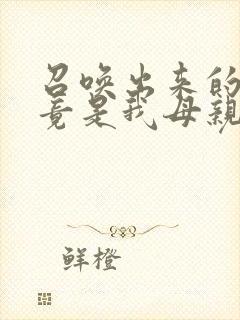 召唤出来的
竟是我母亲
鲜橙